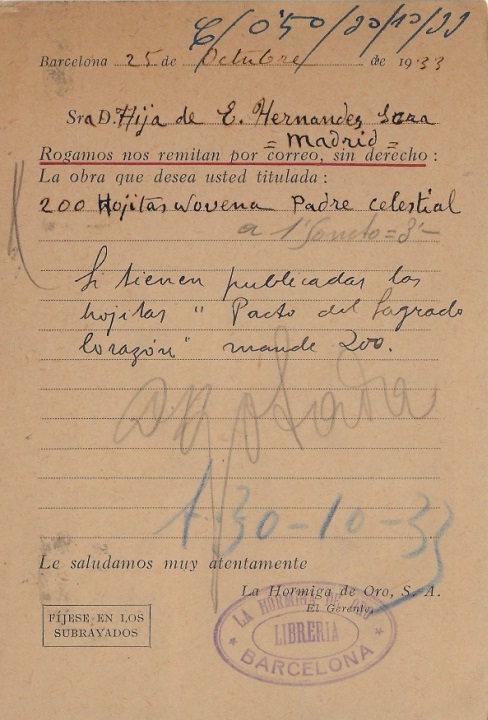 C/0'50/30/10/33
Barcelona 25 de Octubre de 1933
Sra D. Hija de E. Hernandez
= Madrid =
Rogamos nos remitan por correo, sin derecho:
La obra que desea usted titulada:
200 Hojitas Novena Padre celestial
a 1'
= 3'-
Si tienen publicadas las
hojitas " Pacto del Sagrado
Corazón" mande 200.
agotada
A. 30-10-33
Le saludamos muy atentamente
La Hormiga de Oro, S. A.
El Gerente,
FÍJESE EN LOS
SUBRAYADOS
LA HORMIGA DE ORO
LIBRERIA
★ BARCELONA ★